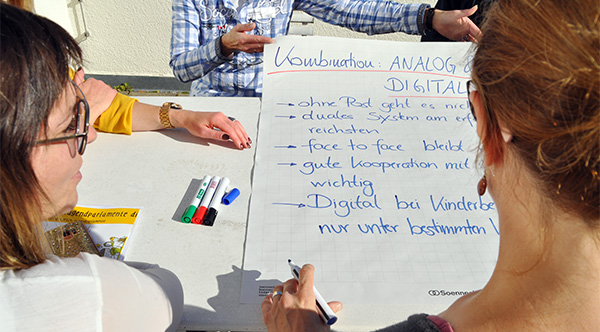 Kombination: ANALOG &
DIGITAL
→ ohne Post geht es nic
→ duales System am erf
reichsten
→ face to face bleibt
→ gute Kooperation mit
wichtig
→ Digital bei Kinderbe
nur unter bestimmten
gendparlamente di
Soennec